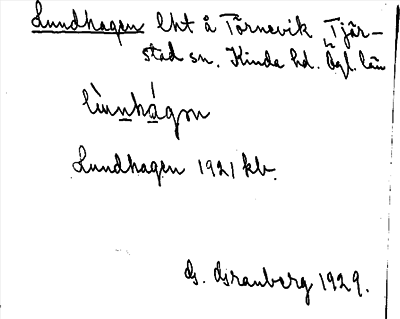 Lundhagen lht å Törnevik, Tjär-
stad sn. Kinda hd. Ögl. län
lùnnhágən
Lundhagen 1921 kb.
G. Granberg 1929.